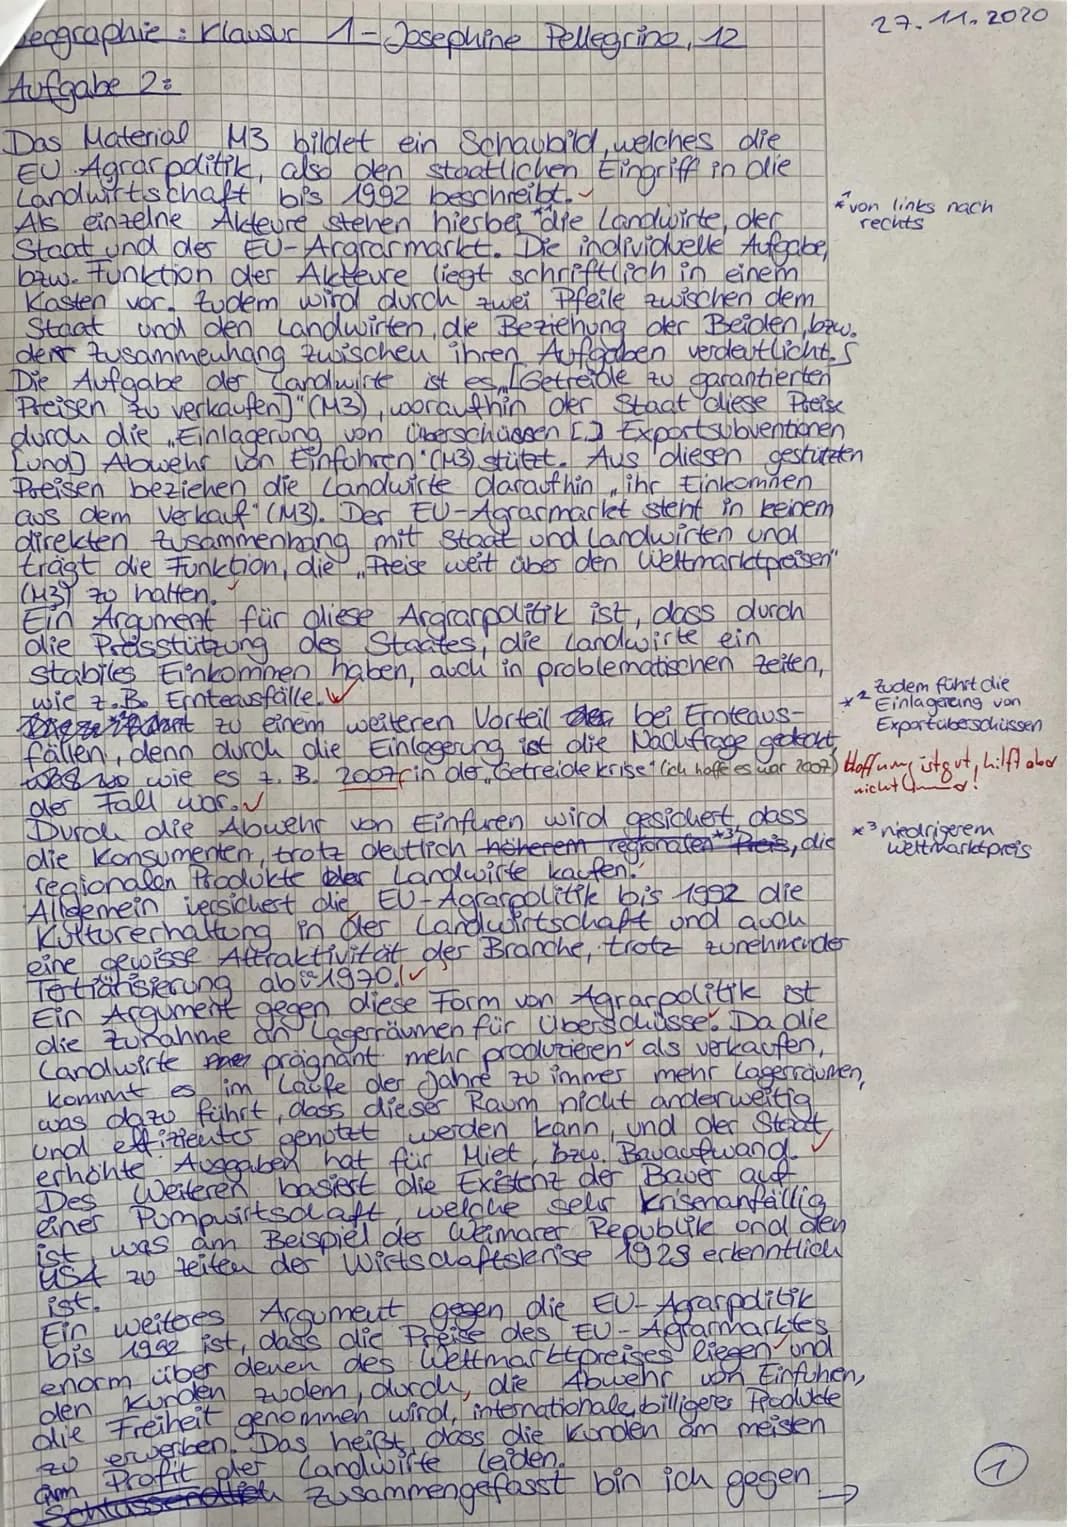 Geographie: Klausur 1 - Josephine Pellegrino, 12
27.11.2020
Aufgabe 2:
Das Material M3 bildet ein Schaubild, welches die
EU-Agrarpolitik, also den staatlichen Eingriff in die
Landwirtschaft bis 1992 beschreibt.
Als einzelne Akteure stehen hierbei *1 die Landwirte, der
*1 von links nach
rechts
Staat und der EU-Argrarmarkt. Die individuelle Aufgabe,
bzw. Funktion der Akteure liegt schriftlich in einem
Kasten vor. Zudem wird durch zwei Pfeile zwischen dem
Staat und den Landwirten, die Beziehung der Beiden, bzw.
der Zusammenhang zwischen ihren Aufgaben verdeutlicht.
Die Aufgabe der Landwirte ist es „[Getreide zu garantierten
Preisen zu verkaufen]" (M3), woraufhin der Staat diese Preise
durch die „Einlagerung von Überschüssen [.] Exportsubventionen
[und] Abwehr von Einfuhren" (M3) stützt. Aus diesen gestützten
Preisen beziehen die Landwirte daraufhin „ihr Einkommen
aus dem Verkauf" (M3). Der EU-Agrarmarkt steht in keinem
direkten Zusammenhang mit Staat und Landwirten und
trägt die Funktion, die „Preise weit über den Weltmarktpreisen"
(M3) zu halten.
Ein Argument für diese Argrarpolitik ist, dass durch
die Preisstützung des Staates, die Landwirte ein
stabiles Einkommen haben, auch in problematischen Zeiten,
wie z.B. Ernteausfälle.
*2 Zudem führt die
Einlagerung von
Exportüberschüssen
zu einem weiteren Vorteil bei Ernteaus-
fällen, denn durch die Einlagerung ist die Nachfrage gedeckt,
wie es z.B. 2007 in der „Getreidekrise" (ich hoffe es war 2007)
Hoffnung ist gut, hilft aber
nicht
der Fall war.
Durch die Abwehr von Einfuren wird gesichert, dass
die Konsumenten, trotz deutlich höherem regionalen *3 Preis, die
*3 niedrigerem
Weltmarktpreis
regionalen Produkte der Landwirte kaufen.
Allgemein versichert die EU-Agrarpolitik bis 1992 die
Kulturerhaltung in der Landwirtschaft und auch
eine gewisse Attraktivität der Branche, trotz zunehmender
Tertiärisierung ab ca 1970.
Ein Argument gegen diese Form von Agrarpolitik ist
die Zunahme an Lagerräumen für Überschüsse. Da die
Landwirte prägnant mehr produzieren als verkaufen,
kommt es im Laufe der Jahre zu immer mehr Lagerräumen,
was dazu führt, dass dieser Raum nicht anderweitig
und effizienter genutzt werden kann, und der Staat,
erhöhte Ausgaben hat für Miet, bzw. Bauaufwand.
Des Weiteren basiert die Existenz der Bauer auf
einer Pumpwirtschaft, welche sehr krisenanfällig
ist, was am Beispiel der Weimarer Republik und den
USA zu Zeiten der Wirtschaftskrise 1929 erkenntlich
ist.
Ein weiteres Argument gegen die EU-Agrarpolitik
bis 1992 ist, dass die Preise des EU-Agrarmarktes
enorm über denen des Weltmarktpreises liegen und
den Kunden zudem, durch, die Abwehr von Einfuhen,
die Freiheit genommen wird, internationale, billigere Produkte
zu erwerben. Das heißt, dass die Kunden am meisten
am Profit der Landwirte leiden.
Schlussendlich zusammengefasst bin ich gegen →
1